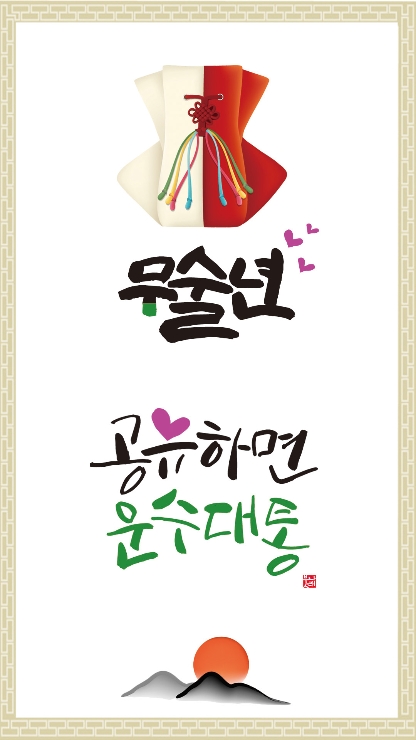 무술년
공유하면
운수대통